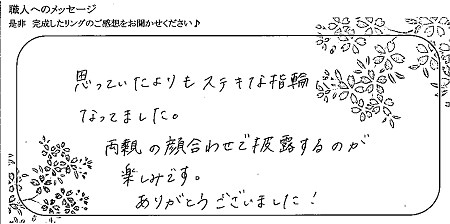 職人へのメッセージ
是非 完成したリングのご感想をお聞かせください♪
思っていたよりもステキな指輪に
なってました。
両親の顔合わせで披露するのが
楽しみです。
ありがとうございました！